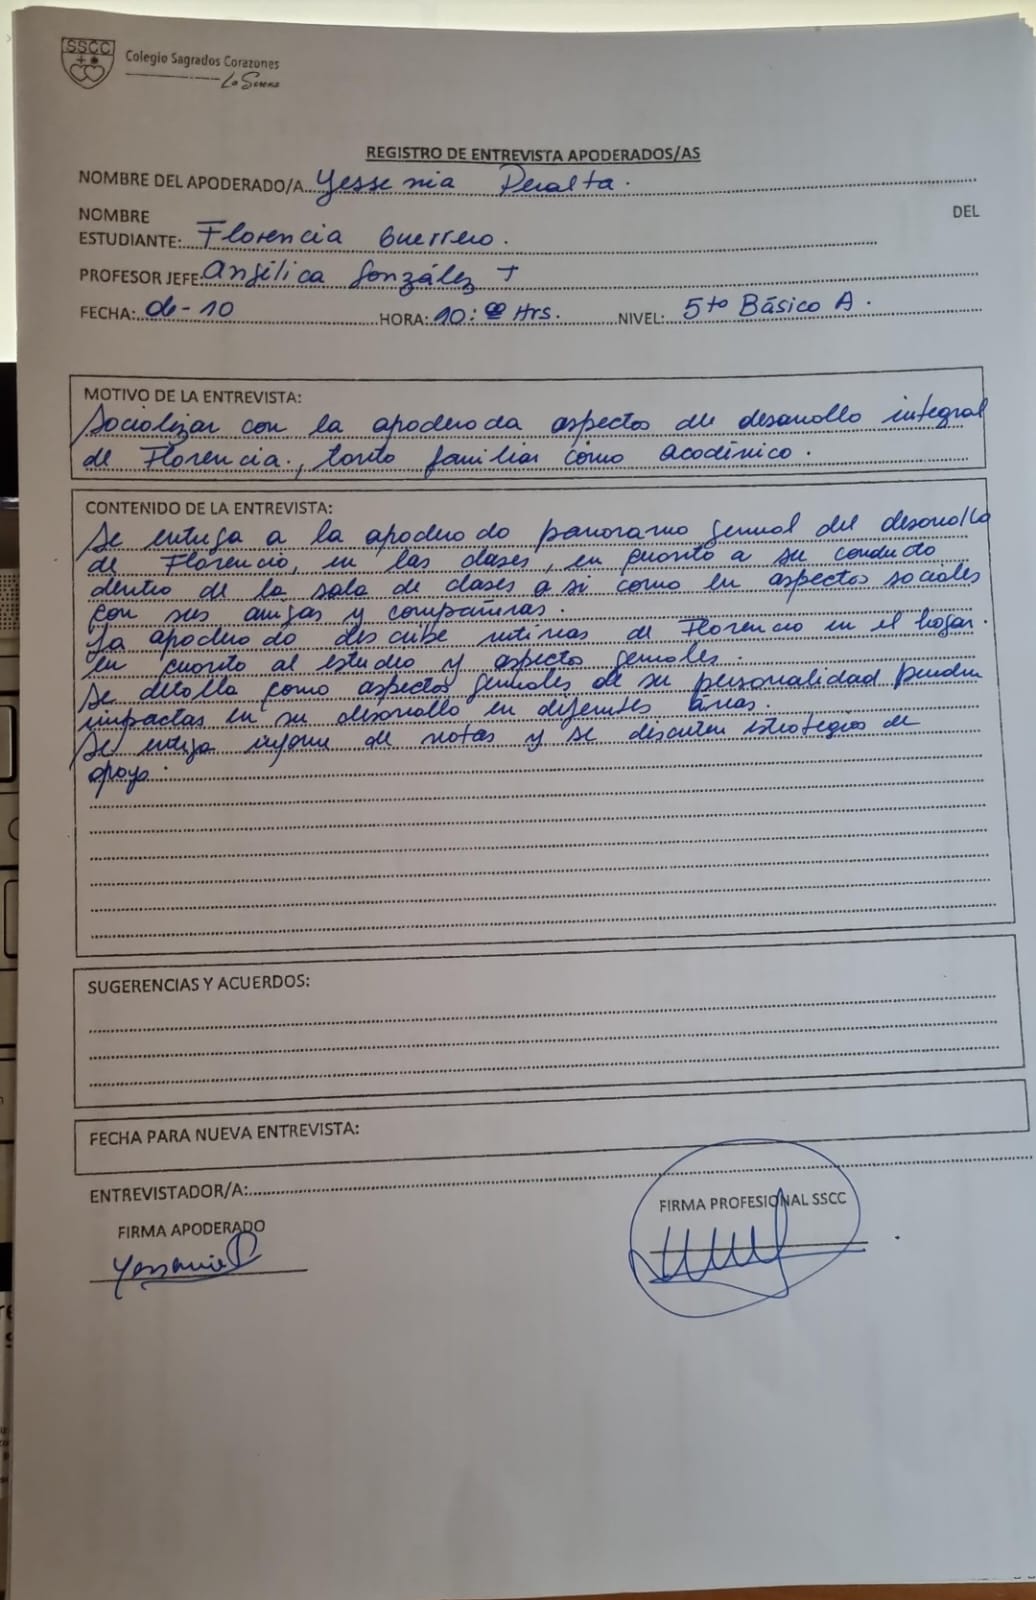 SSCC
Colegio Sagrados Corazones
La Serena
REGISTRO DE ENTREVISTA APODERADOS/AS
NOMBRE DEL APODERADO/A Yessenia Peralta.
NOMBRE DEL
ESTUDIANTE: Florencia Guerrero.
PROFESOR JEFE Angélica González T
FECHA: 06-10 HORA: 10: Hrs. NIVEL: 5to Básico A.
MOTIVO DE LA ENTREVISTA:
Socializar con la apoderada aspectos de desarollo integral
de Florencia, tanto familiar como académico.
CONTENIDO DE LA ENTREVISTA:
Se entrega a la apoderado panorama general del desarrollo
de Florencia, en las clases, en cuanto a su conducta
dentro de la sala de clases a si como en aspectos sociales
con sus amigas y compañeras.
La apoderado describe rutinas de Florencia en el hogar.
en cuanto al estudio y aspecto generales.
Se detalla como aspectos generales de su personalidad pueden
impactas en su desarrollo en diferentes áreas.
Se entrega informe de notas y se discuten estrategias de
apoyo.
SUGERENCIAS Y ACUERDOS:
FECHA PARA NUEVA ENTREVISTA:
ENTREVISTADOR/A:
FIRMA PROFESIONAL SSCC
FIRMA APODERADO
Yessenia P